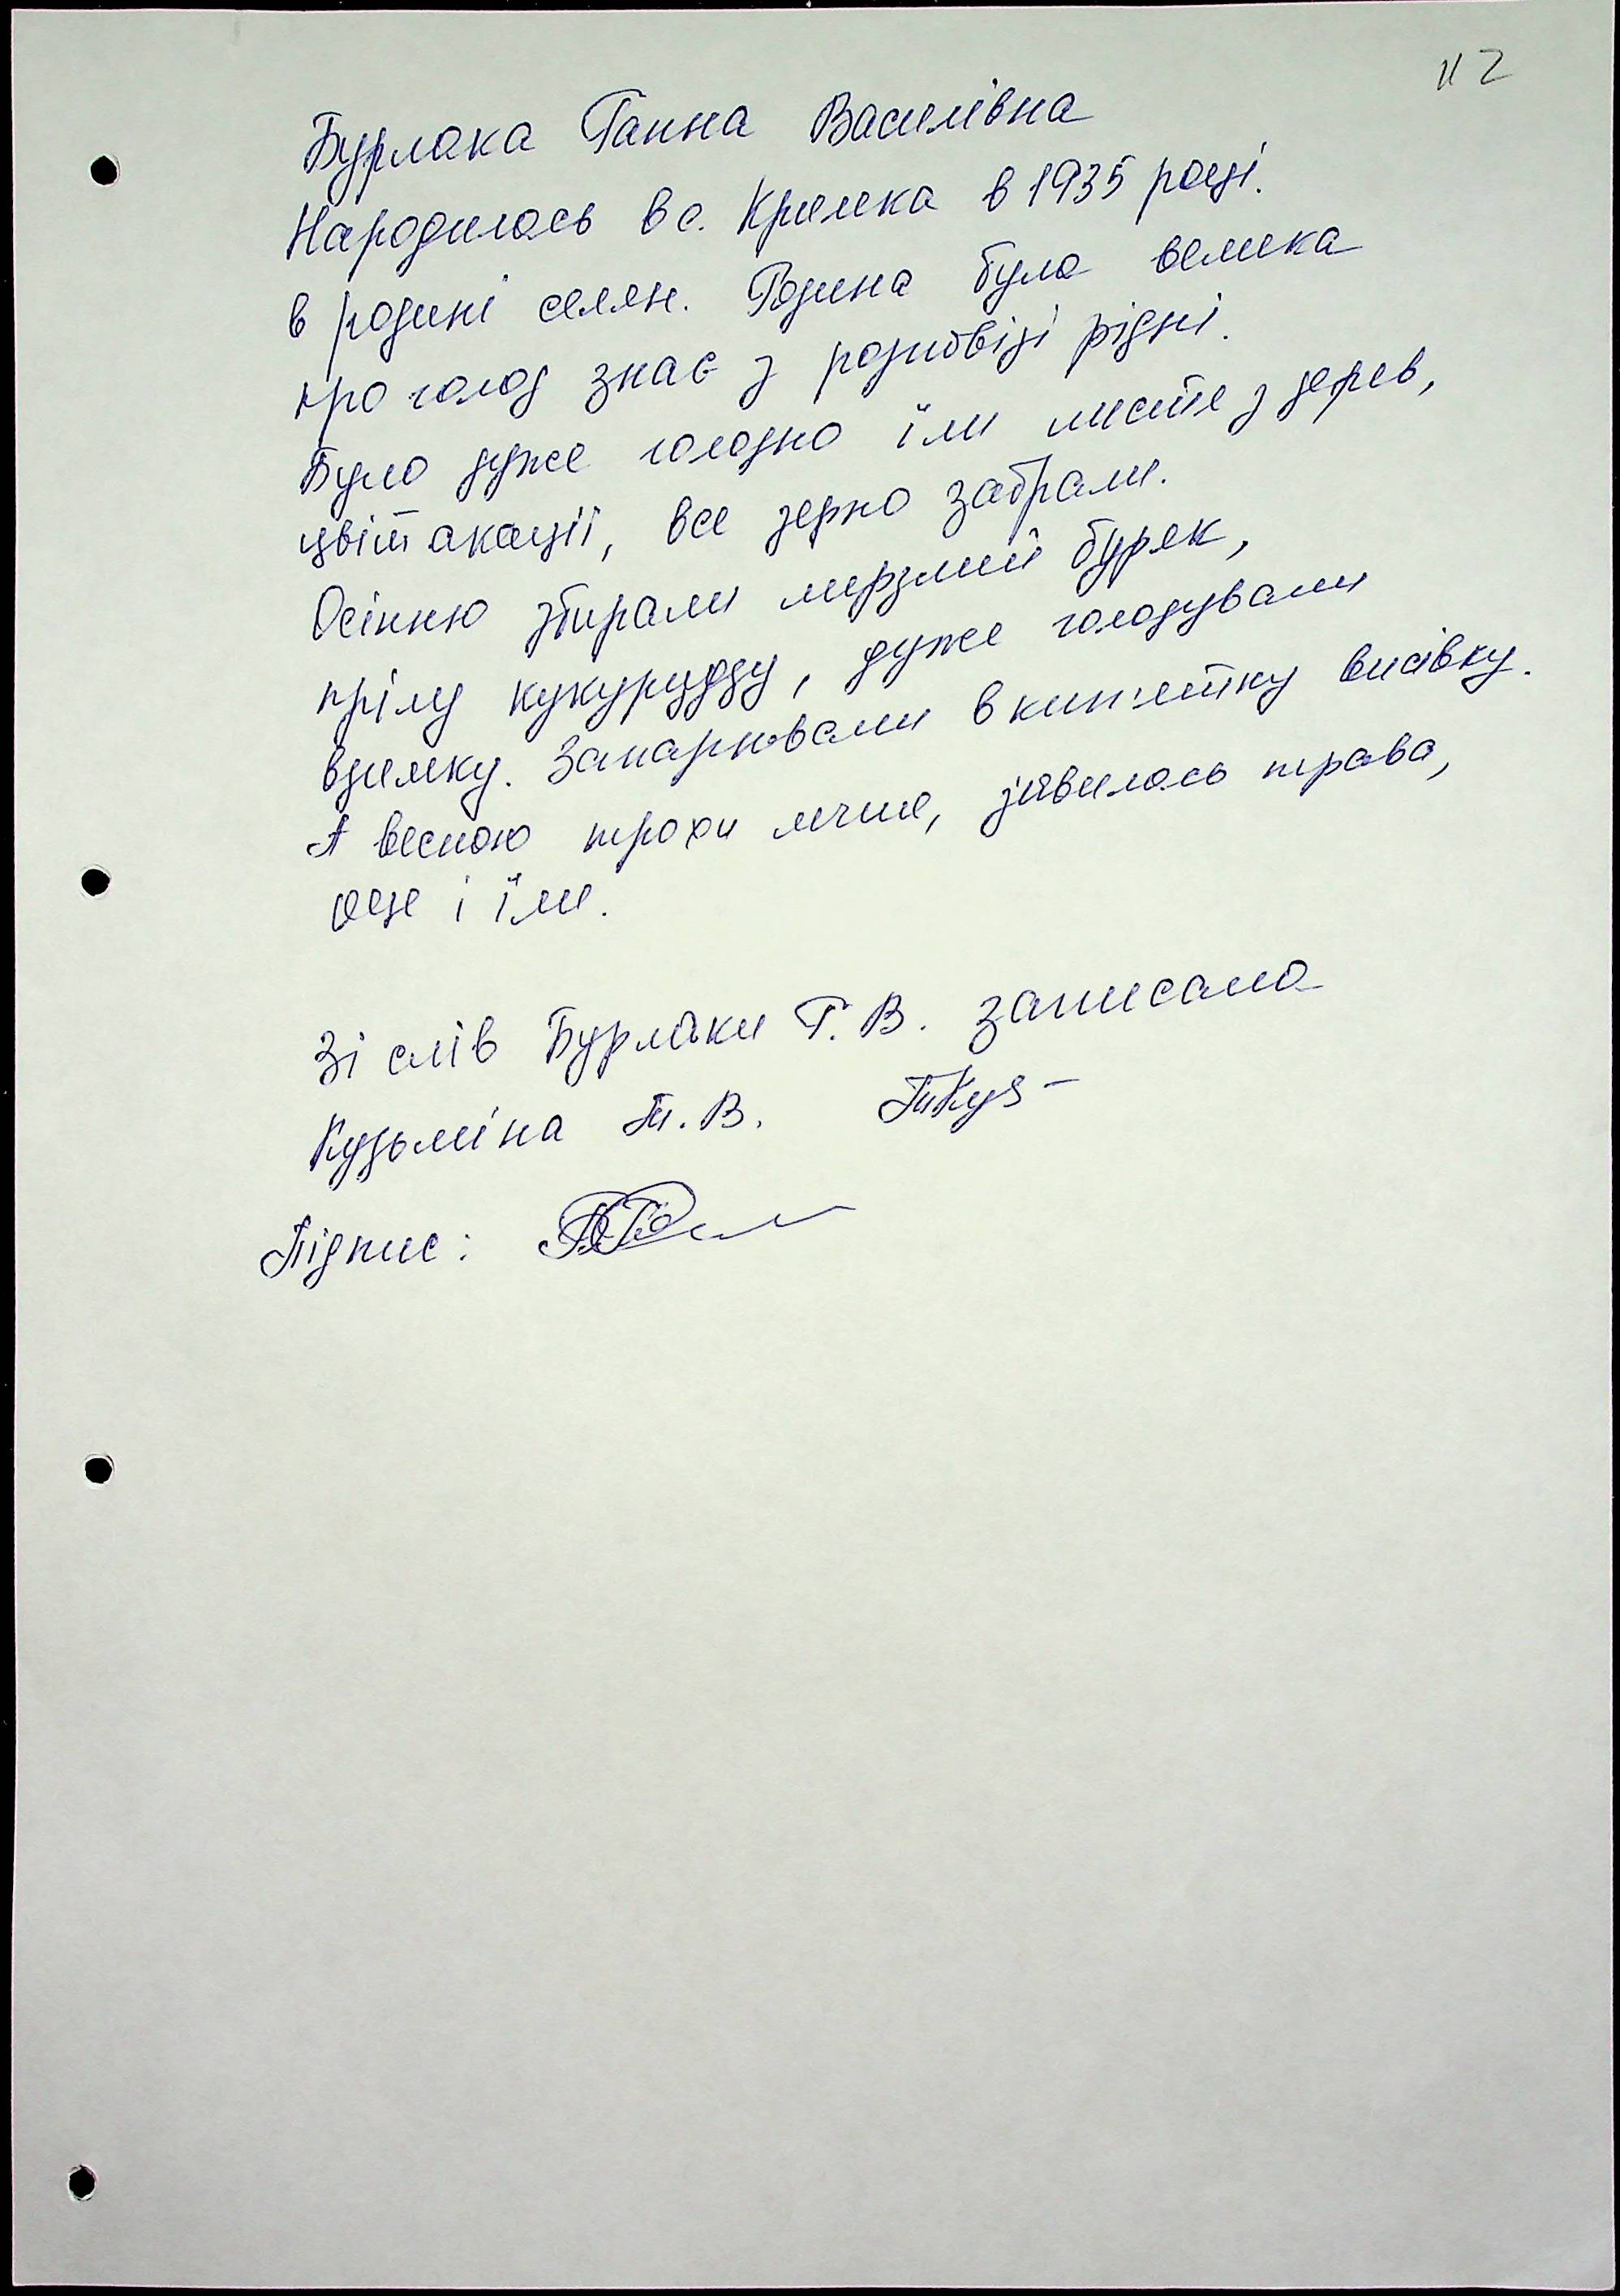 112
Бурлака Ганна Василівна
Народилась в с. Кримка в 1935 році.
в родині селян. Родина була велика
про голод знає з розповіді рідні.
Було дуже голодно їли листя з дерев,
цвіт акації, все зерно забрали.
Осінню збирали мерзлий буряк,
прілу кукурудзу, дуже голодували
взимку. Запарювали в кип'ятку висівку.
А весною трохи лучше, з'явилась трава,
оце і їли.
Зі слів Бурлаки Г.В. записала
Кузьміна Т.В.
Підпис: